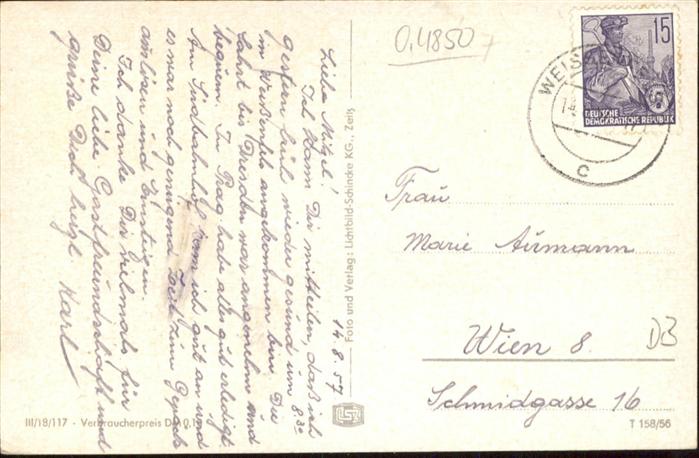 14.8.57
Liebe Mitzel!
Ich kann Dir mitteilen, daß ich
gestern hier wieder gesund um 8³⁰
in Weißenfels angekommen bin. Die
Fahrt bis Dresden war angenehm und
bequem. In Prag habe alles gut erledigt.
Am Südbahnhof kam ich gut an und
es war noch genügend Zeit zum Gepäck
auslösen und Einsteigen.
Ich danke Dir vielmals für
Deine liebe Gastfreundschaft und
grüße Dich herzl. Karl
III/18/117 - Verbraucherpreis D
Foto und Verlag: Lichtbild-Schincke KG., Zeitz
0,4850
15
DEUTSCHE
DEMOKRATISCHE REPUBLIK
WEISSE
c
Frau
Marie Aumann
Wien 8.
Schmidgasse 16
DB
T 158/56